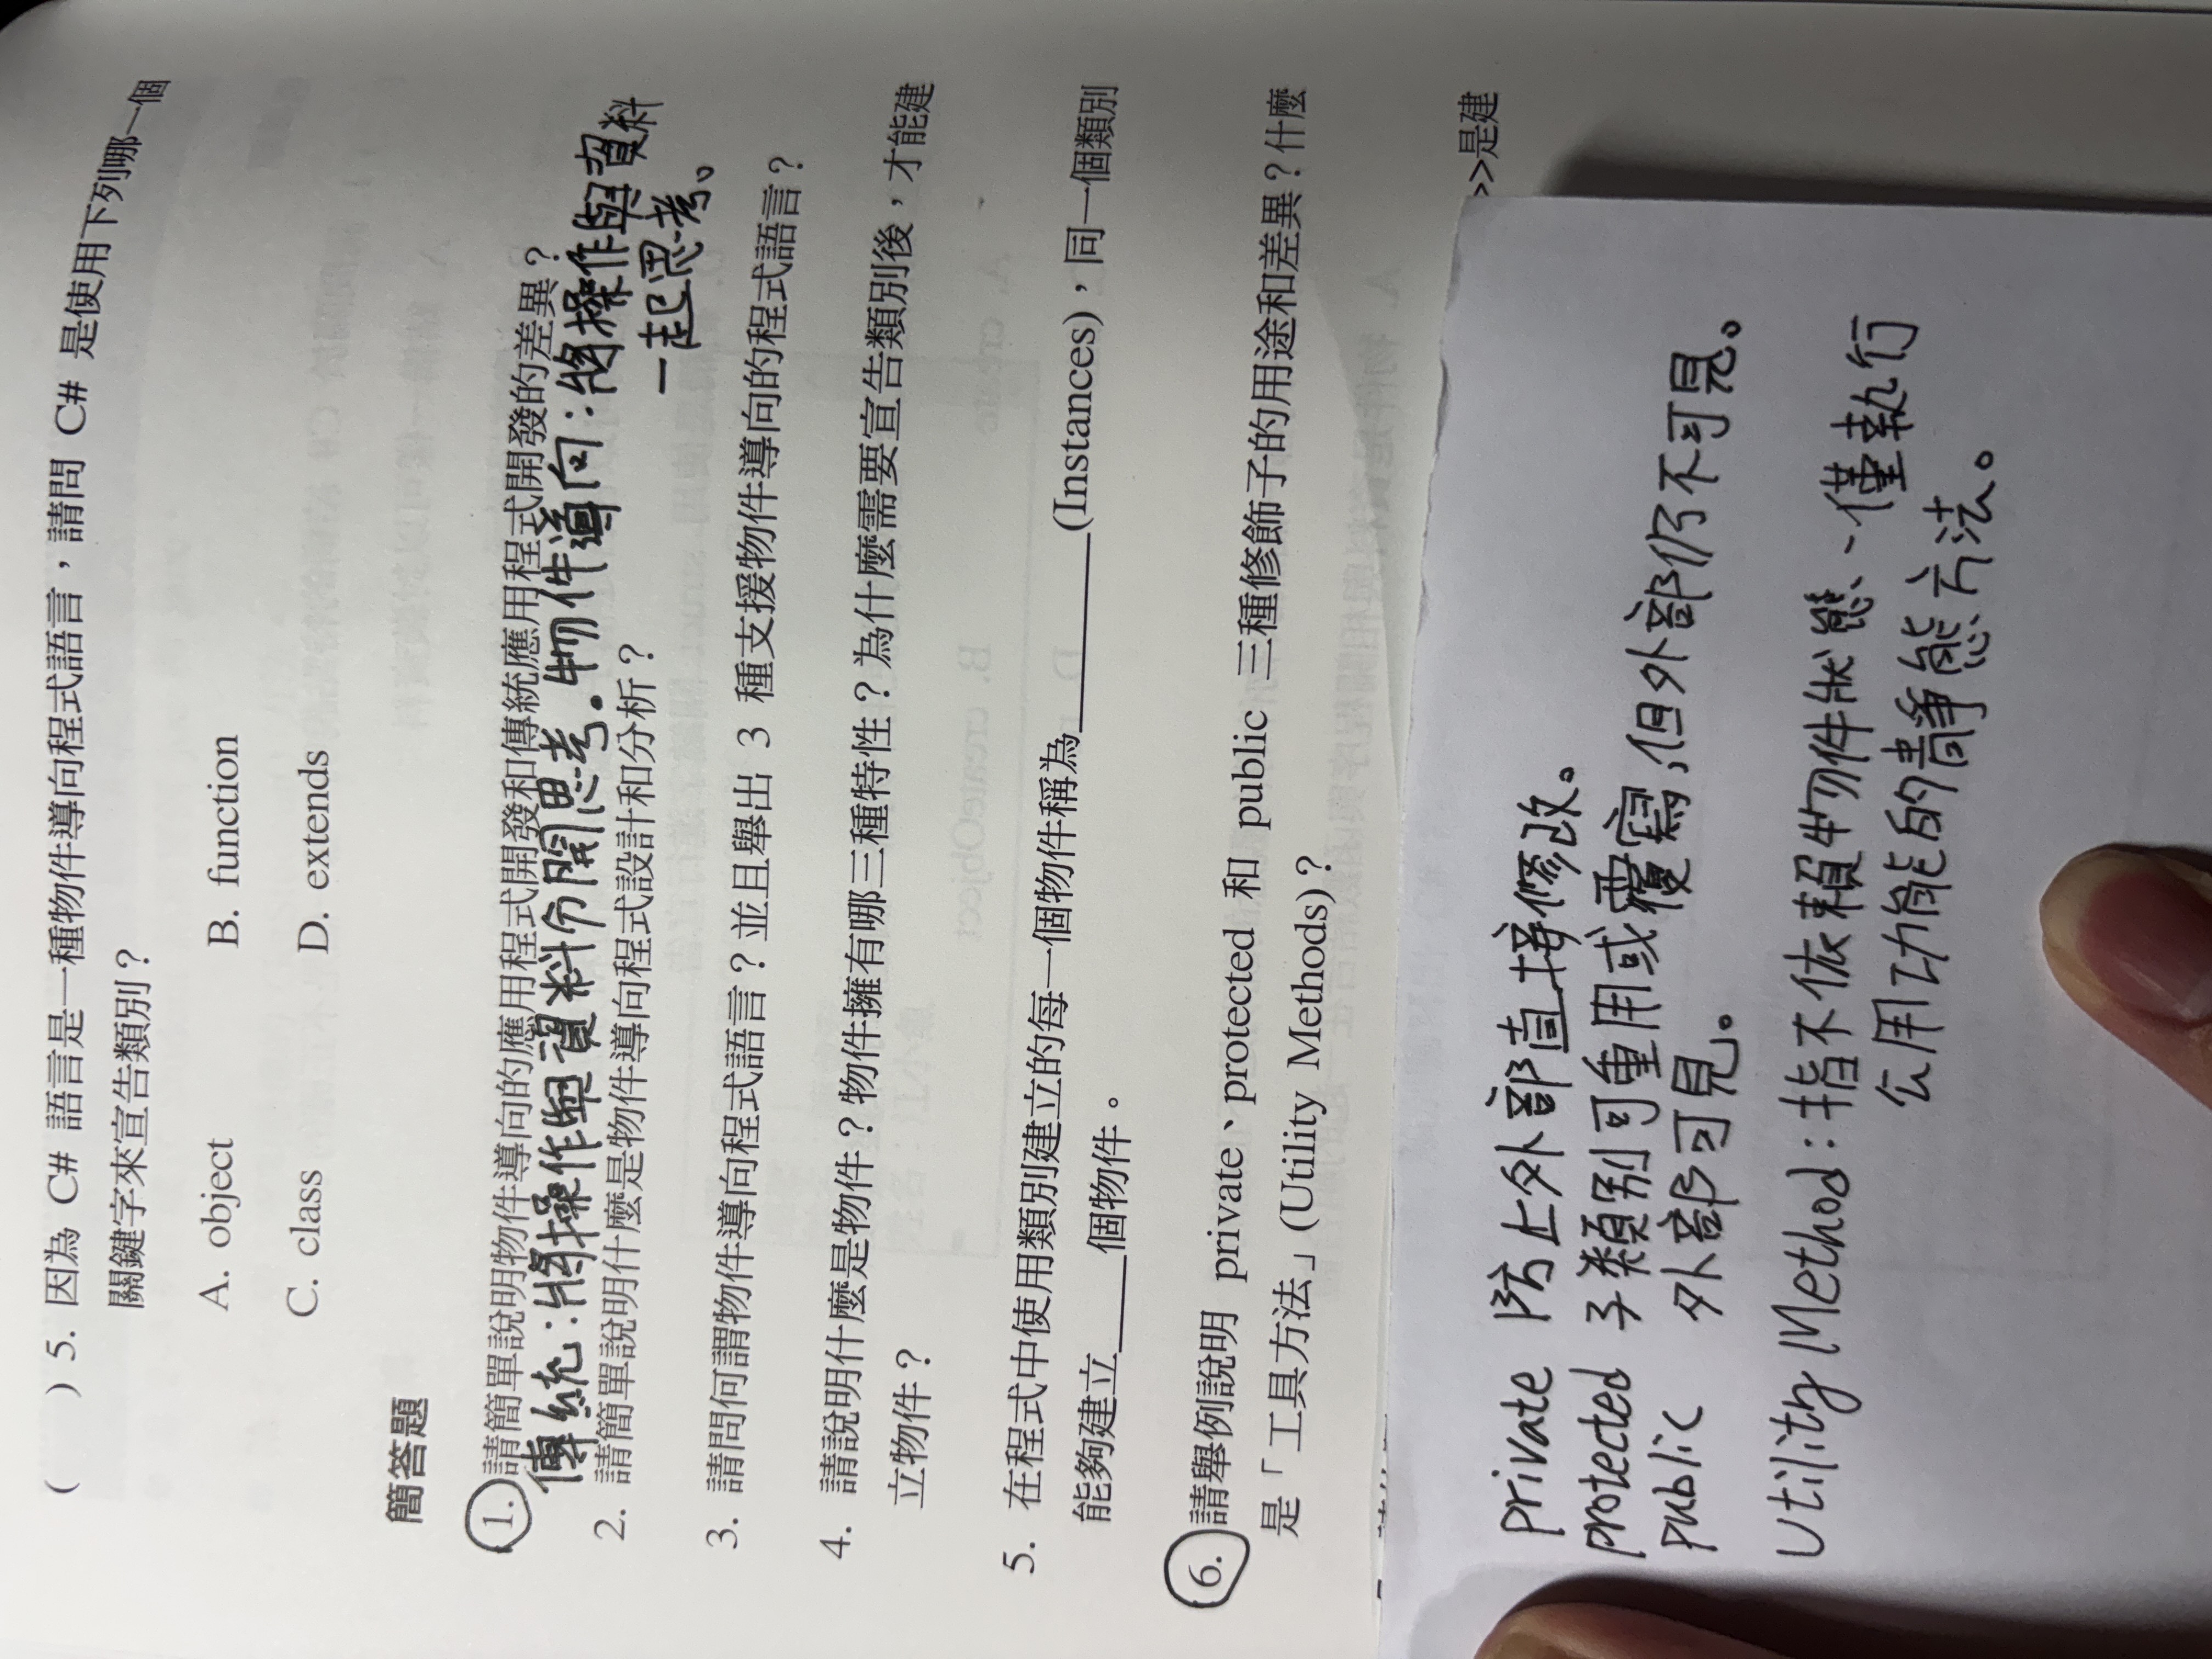 (　) 5. 因為 C# 語言是一種物件導向程式語言，請問 C# 是使用下列哪一個
關鍵字來宣告類別？
A. object B. function
C. class D. extends
簡答題
1. 請簡單說明物件導向的應用程式開發和傳統應用程式開發的差異？
傳統：將操作與資料分開思考。物件導向：將操作與資料
一起思考。
2. 請簡單說明什麼是物件導向程式設計和分析？
3. 請問何謂物件導向程式語言？並且舉出 3 種支援物件導向的程式語言？
4. 請說明什麼是物件？物件擁有哪三種特性？為什麼需要宣告類別後，才能建
立物件？
5. 在程式中使用類別建立的每一個物件稱為________(Instances)，同一個類別
能夠建立____個物件。
6. 請舉例說明 private、protected 和 public 三種修飾子的用途和差異？什麼
是「工具方法」(Utility Methods)？
>>是建
private 防止外部直接修改。
protected 子類別可重用或覆寫，但外部仍不可見。
public 外部可見。
Utility Method：指不依賴物件狀態、僅執行
公用功能的靜態方法。